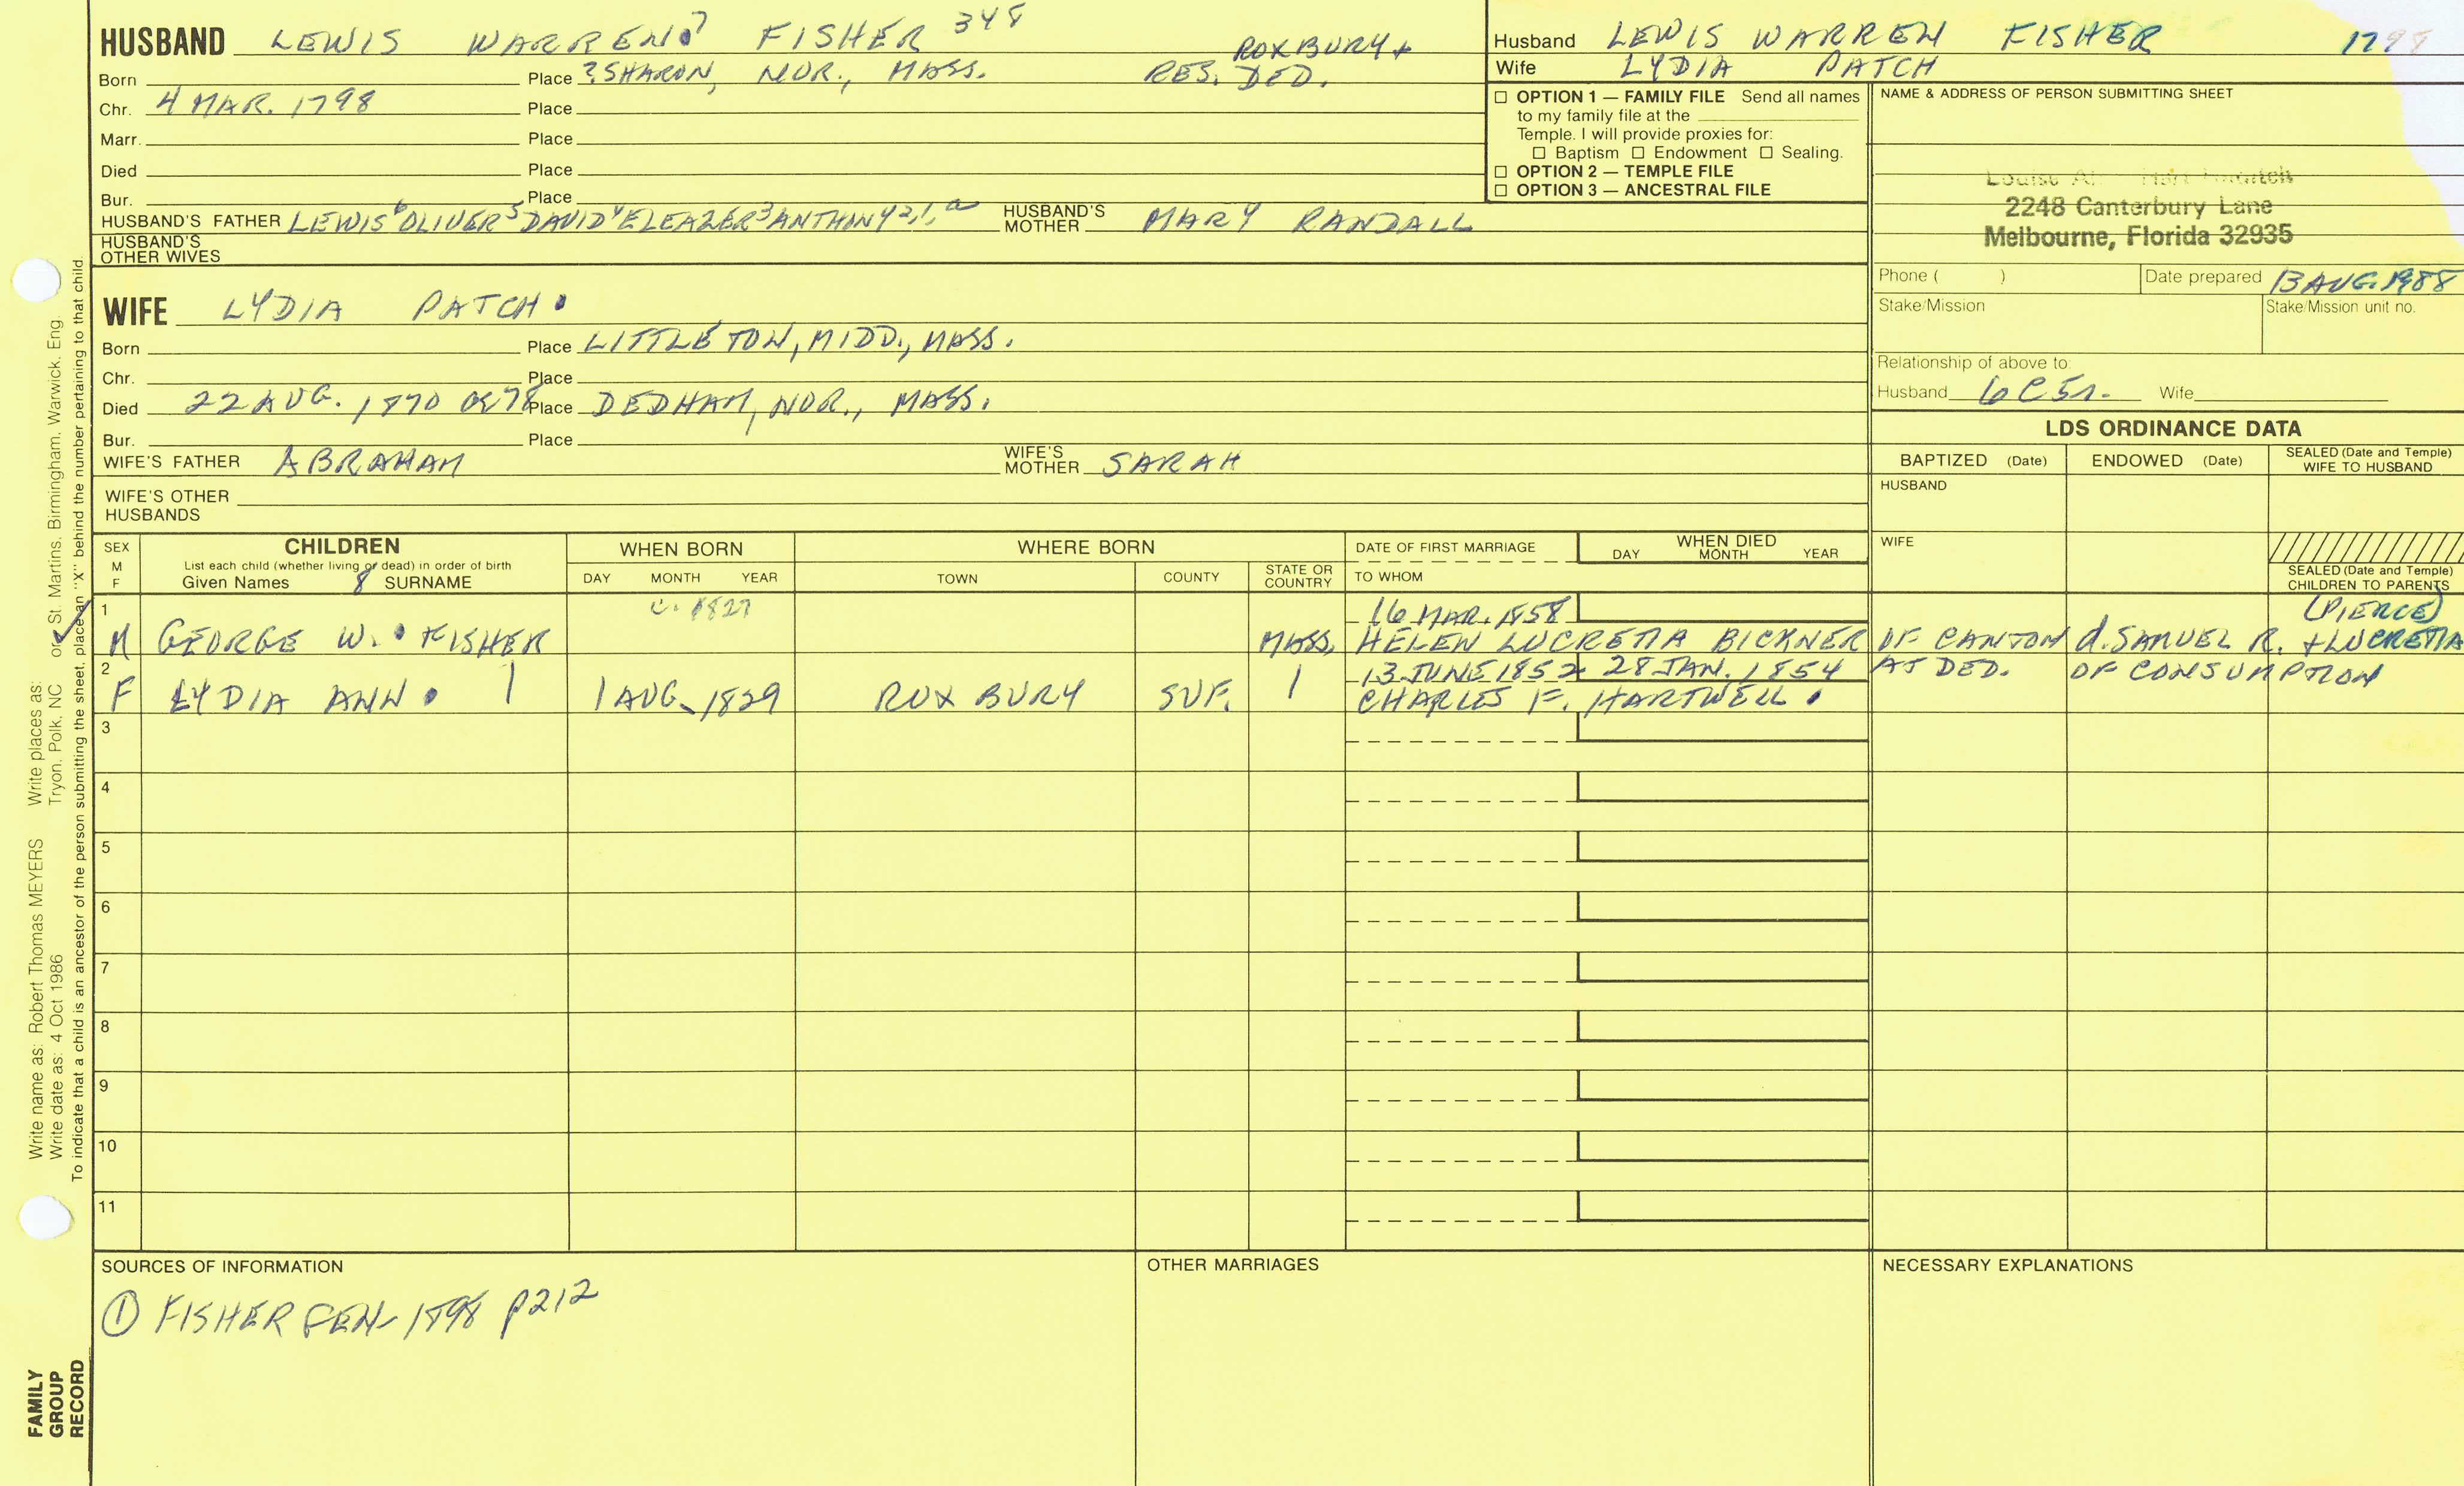 HUSBAND LEWIS WARREN 7 FISHER 348
ROXBURY +
Born Place ? SHARON, NOR., MASS. RES. DED.
Chr. 4 MAR. 1798 Place
Marr. Place
Died Place
Bur. Place
HUSBAND'S FATHER LEWIS 6 OLIVER 5 DAVID 4 ELEAZER 3 ANTHONY 2,1,a HUSBAND'S MOTHER MARY RANDALL
HUSBAND'S OTHER WIVES
WIFE LYDIA PATCH
Born Place LITTLETON, MIDD., MASS.
Chr. Place
Died 22 AUG. 1870 OR 78 Place DEDHAM, NOR., MASS.
Bur. Place
WIFE'S FATHER ABRAHAM WIFE'S MOTHER SARAH
WIFE'S OTHER HUSBANDS
Husband LEWIS WARREN FISHER 1798
Wife LYDIA PATCH
☐ OPTION 1 — FAMILY FILE Send all names
to my family file at the
Temple. I will provide proxies for:
☐ Baptism ☐ Endowment ☐ Sealing.
☐ OPTION 2 — TEMPLE FILE
☐ OPTION 3 — ANCESTRAL FILE
NAME & ADDRESS OF PERSON SUBMITTING SHEET
Louise
2248 Canterbury Lane
Melbourne, Florida 32935
Phone ( ) Date prepared 13 AUG. 1988
Stake/Mission Stake/Mission unit no.
Relationship of above to:
Husband 6C5r. Wife
LDS ORDINANCE DATA
BAPTIZED (Date) ENDOWED (Date) SEALED (Date and Temple) WIFE TO HUSBAND
HUSBAND
WIFE
SEALED (Date and Temple) CHILDREN TO PARENTS
SEX M F CHILDREN
List each child (whether living or dead) in order of birth
Given Names 8 SURNAME
WHEN BORN DAY MONTH YEAR
WHERE BORN TOWN COUNTY STATE OR COUNTRY
DATE OF FIRST MARRIAGE TO WHOM
WHEN DIED DAY MONTH YEAR
1 c. 1827 16 MAR. 1858 (PIERCE)
M GEORGE W. FISHER MASS. HELEN LUCRETIA BICKNER OF CANTON d. SAMUEL R. + LUCRETIA
2 13 JUNE 1852 28 JAN. 1854 AT DED. OF CONSUMPTION
F LYDIA ANN 1 AUG. 1829 ROXBURY SUF. CHARLES F. HARTWELL
3
4
5
6
7
8
9
10
11
SOURCES OF INFORMATION
① FISHER GEN. 1898 p212
OTHER MARRIAGES
NECESSARY EXPLANATIONS
Write name as: Robert Thomas MEYERS Write places as:
Write date as: 4 Oct 1986 Tryon, Polk, NC or St. Martins, Birmingham, Warwick, Eng.
To indicate that a child is an ancestor of the person submitting the sheet, place an "X" behind the number pertaining to that child.
FAMILY
GROUP
RECORD